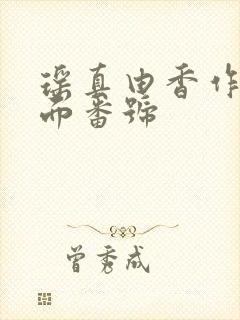 瑶真由香作
品番號
曾秀成